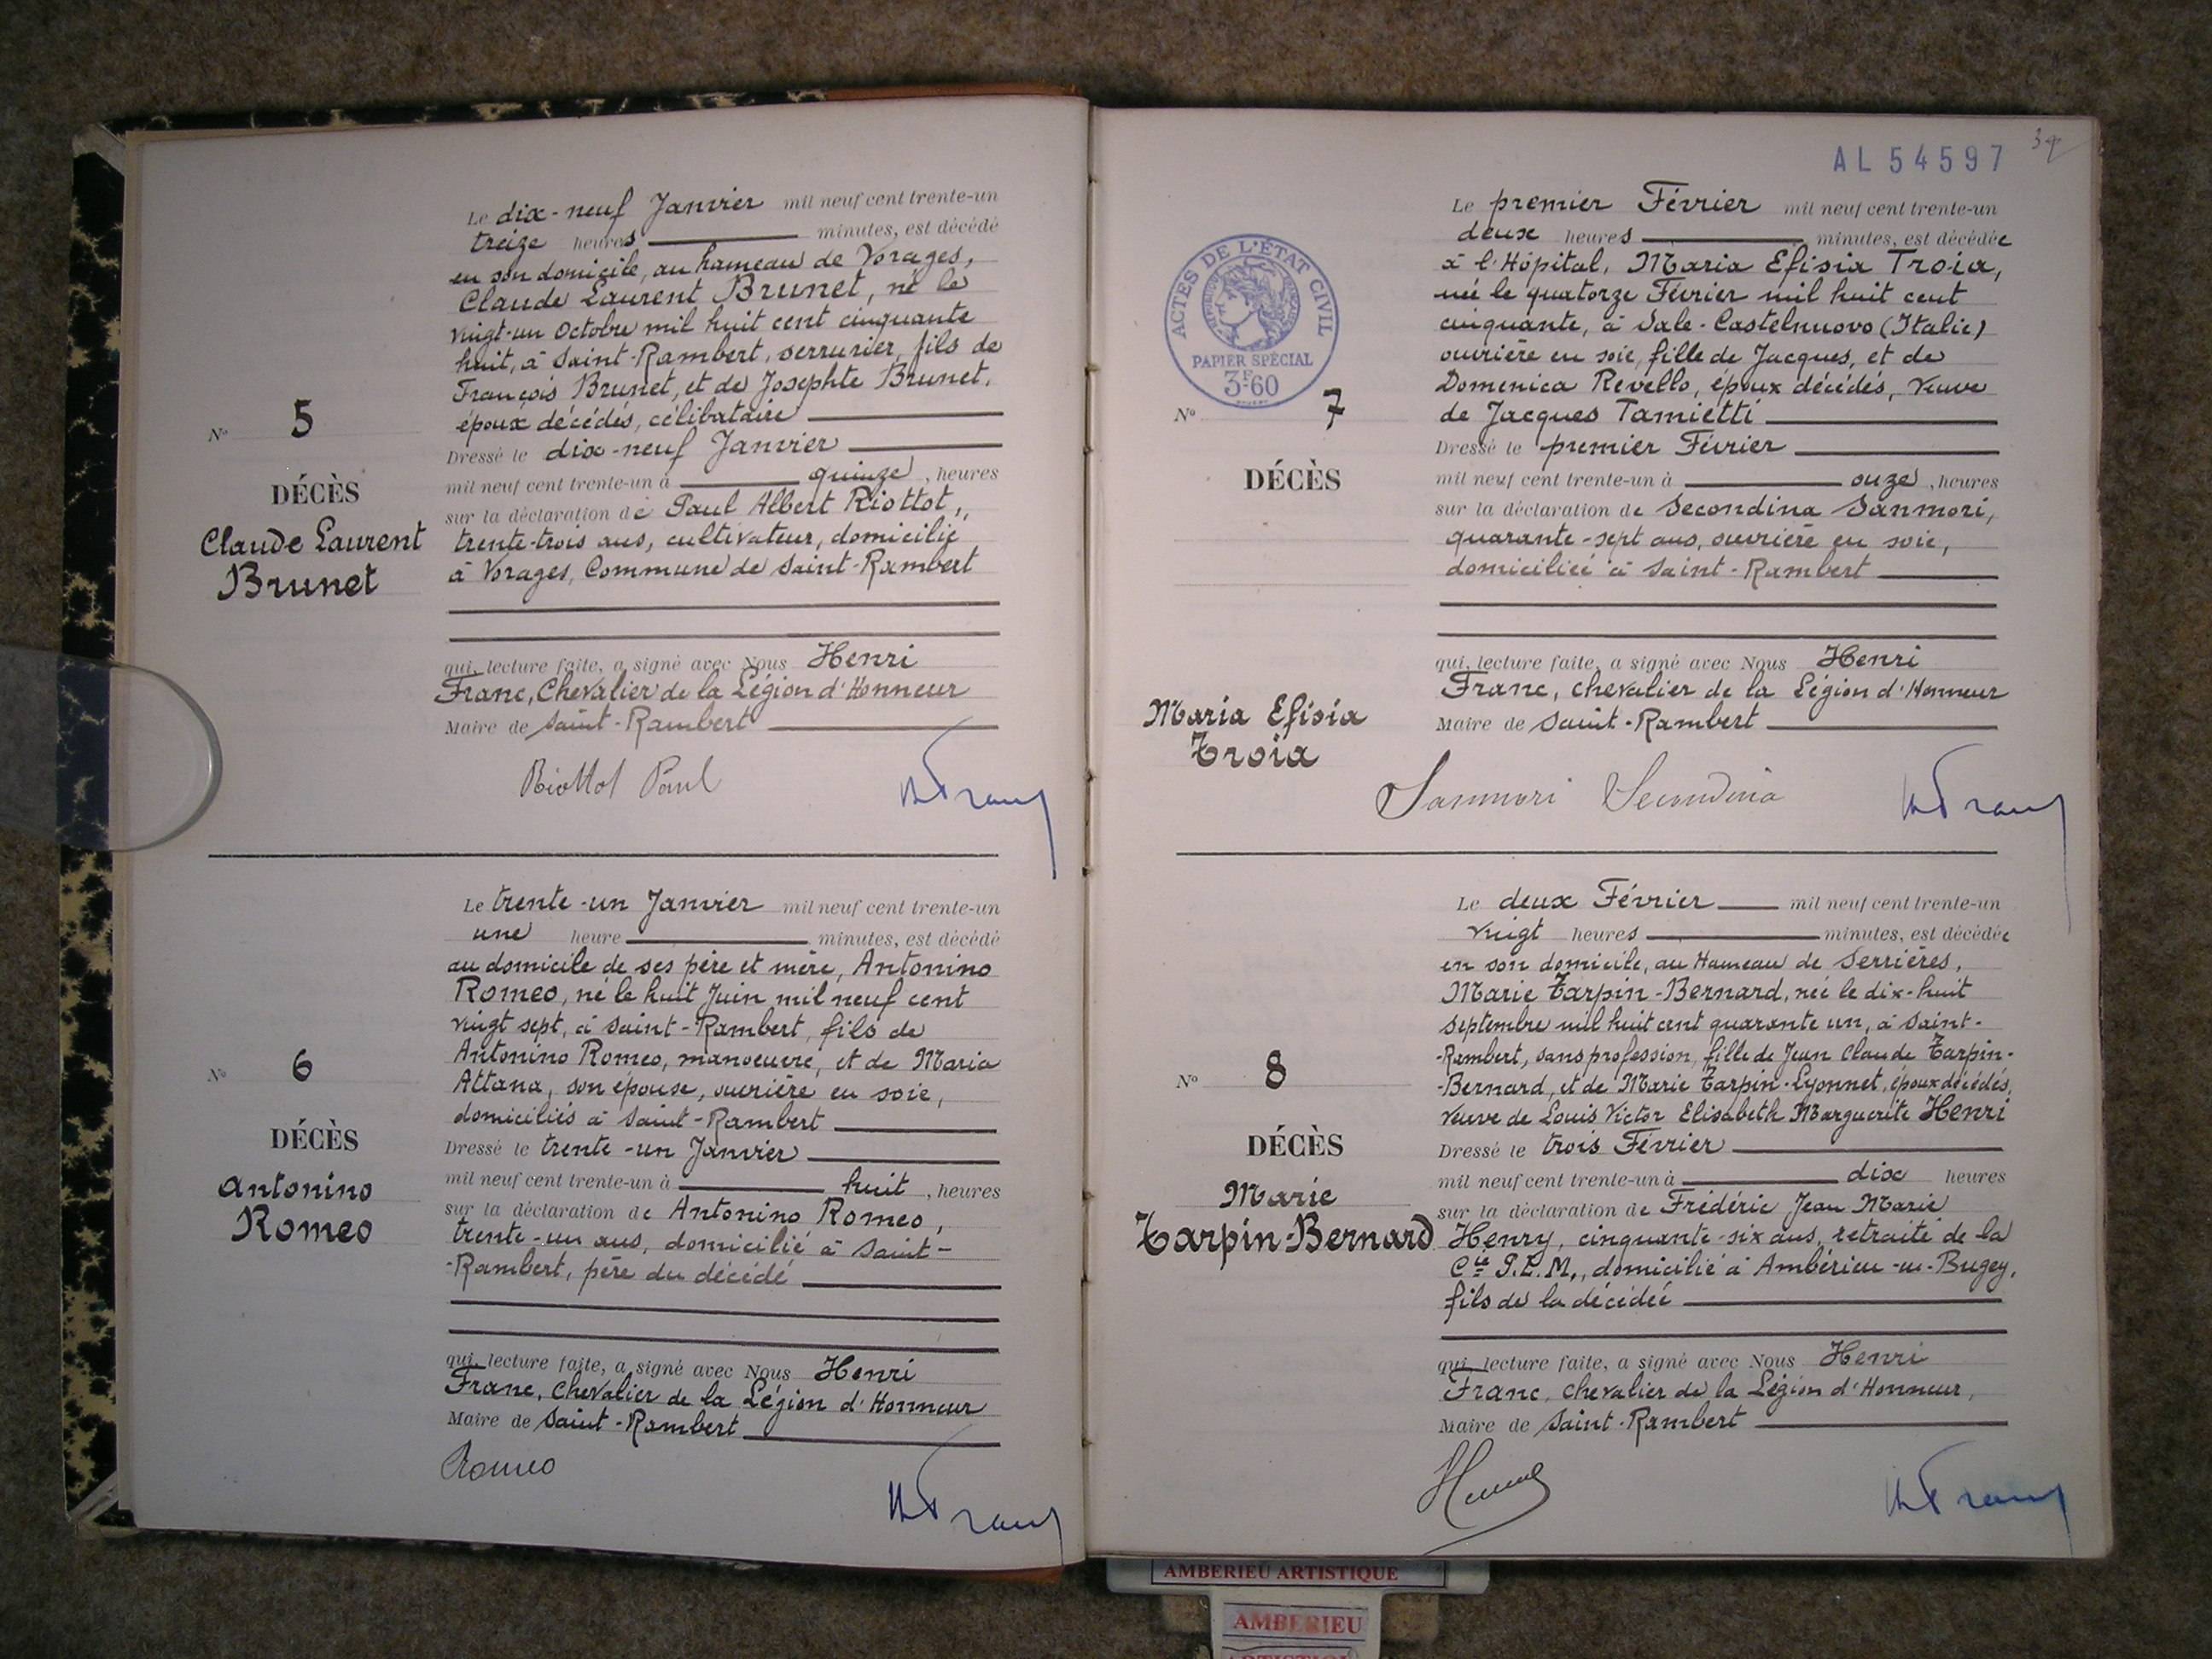 Le dix-neuf Janvier mil neuf cent trente-un
treize heures minutes, est décédé
en son domicile, au hameau de Vorages,
Claude Laurent Brunet, né le
vingt-un Octobre mil huit cent cinquante
huit, à Saint-Rambert, serrurier, fils de
François Brunet, et de Josephte Brunet,
époux décédés, célibataire
Dressé le dix-neuf Janvier
mil neuf cent trente-un à quinze, heures
sur la déclaration de Paul Albert Riottot,
trente-trois ans, cultivateur, domicilié
à Vorages, Commune de Saint-Rambert
qui, lecture faite, a signé avec Nous Henri
Franc, Chevalier de la Légion d'Honneur
Maire de Saint-Rambert
Riottot Paul
HFranc
N° 5
DÉCÈS
Claude Laurent
Brunet
Le trente-un Janvier mil neuf cent trente-un
une heure minutes, est décédé
au domicile de ses père et mère, Antonino
Romeo, né le huit Juin mil neuf cent
vingt sept, à Saint-Rambert, fils de
Antonino Romeo, manoeuvre, et de Maria
Attana, son épouse, ouvrière en soie,
domiciliés à Saint-Rambert
Dressé le trente-un Janvier
mil neuf cent trente-un à huit, heures
sur la déclaration de Antonino Romeo,
trente-un ans, domicilié à Saint-
-Rambert, père du décédé
qui, lecture faite, a signé avec Nous Henri
Franc, Chevalier de la Légion d'Honneur
Maire de Saint-Rambert
Romeo
HFranc
N° 6
DÉCÈS
Antonino
Romeo
AL 54597
ACTES DE L'ÉTAT CIVIL
RÉPUBLIQUE FRANÇAISE
PAPIER SPÉCIAL
3F60
Le premier Février mil neuf cent trente-un
deux heures minutes, est décédée
à l'Hôpital, Maria Efisia Troia,
née le quatorze Février mil huit cent
cinquante, à Sale-Castelnuovo (Italie)
ouvrière en soie, fille de Jacques, et de
Domenica Revello, époux décédés, veuve
de Jacques Tamietti
Dressé le premier Février
mil neuf cent trente-un à onze, heures
sur la déclaration de Secondina Sanmori,
quarante-sept ans, ouvrière en soie,
domiciliée à Saint-Rambert
qui, lecture faite, a signé avec Nous Henri
Franc, chevalier de la Légion d'Honneur
Maire de Saint-Rambert
Sanmori Secondina
HFranc
N° 7
DÉCÈS
Maria Efisia
Troia
Le deux Février mil neuf cent trente-un
vingt heures minutes, est décédée
en son domicile, au Hameau de Serrières,
Marie Tarpin-Bernard, née le dix-huit
septembre mil huit cent quarante un, à Saint-
-Rambert, sans profession, fille de Jean Claude Tarpin-
-Bernard, et de Marie Tarpin-Lyonnet, époux décédés,
veuve de Louis Victor Elisabeth Marguerite Henri
Dressé le trois Février
mil neuf cent trente-un à dix heures
sur la déclaration de Frédéric Jean Marie
Henry, cinquante-six ans, retraité de la
Cie P.L.M., domicilié à Ambérieu-en-Bugey,
fils de la décédée
qui, lecture faite, a signé avec Nous Henri
Franc, chevalier de la Légion d'Honneur,
Maire de Saint-Rambert
HFranc
N° 8
DÉCÈS
Marie
Tarpin-Bernard
AMBERIEU ARTISTIQUE
AMBERIEU
ARTISTIQUE